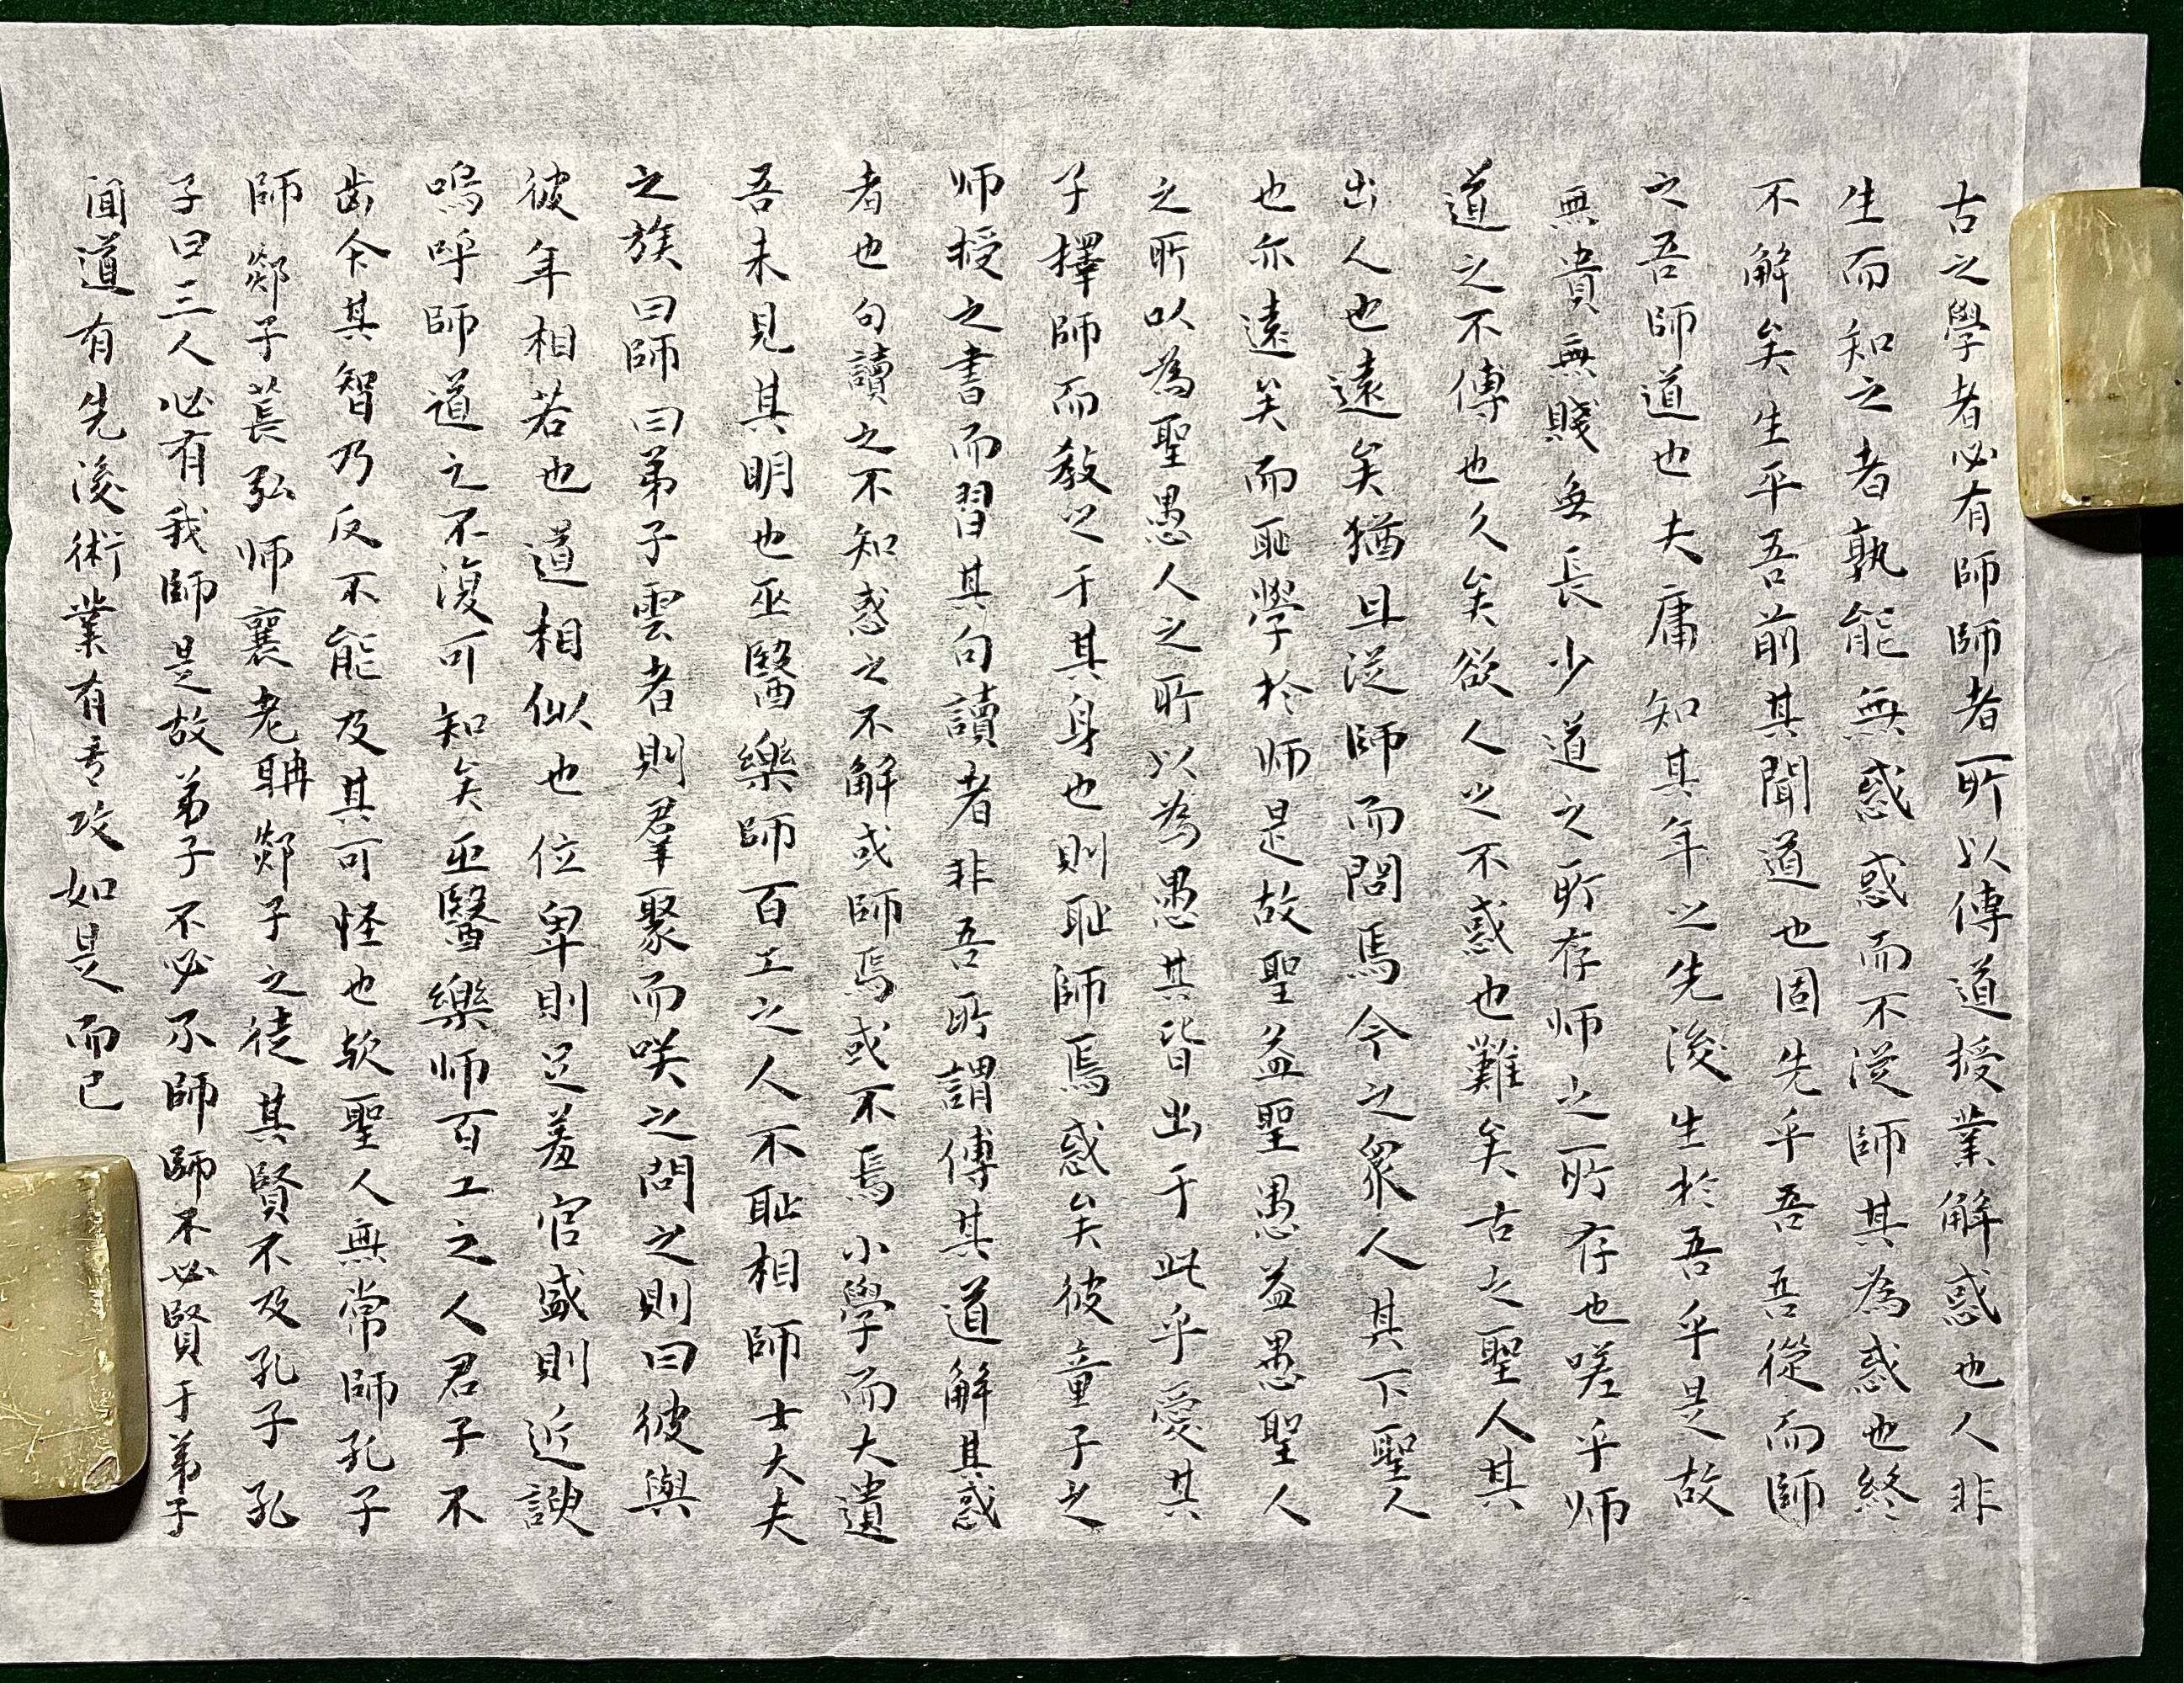 古之學者必有師師者所以傳道授業解惑也人非
生而知之者孰能無惑惑而不從師其為惑也終
不解矣生乎吾前其聞道也固先乎吾吾從而師
之吾師道也夫庸知其年之先後生於吾乎是故
無貴無賤無長少道之所存师之所存也嗟乎师
道之不傳也久矣欲人之不惑也難矣古之聖人其
出人也遠矣猶且從師而問焉今之衆人其下聖人
也亦遠矣而恥學於师是故聖益聖愚益愚聖人
之所以為聖愚人之所以為愚其皆出于此乎愛其
子擇師而教之于其身也則恥師焉惑矣彼童子之
师授之書而習其句讀者非吾所謂傳其道解其惑
者也句讀之不知惑之不解或師焉或不焉小學而大遺
吾未見其明也巫醫樂師百工之人不恥相師士大夫
之族曰師曰弟子雲者則羣聚而咲之問之則曰彼與
彼年相若也道相似也位卑則足羞官盛則近諛
嗚呼師道之不復可知矣巫醫樂师百工之人君子不
齿今其智乃反不能及其可怪也欤聖人無常師孔子
師郯子萇弘师襄老聃郯子之徒其賢不及孔子孔
子曰三人必有我師是故弟子不必不師師不必賢于弟子
聞道有先後術業有专攻如是而已